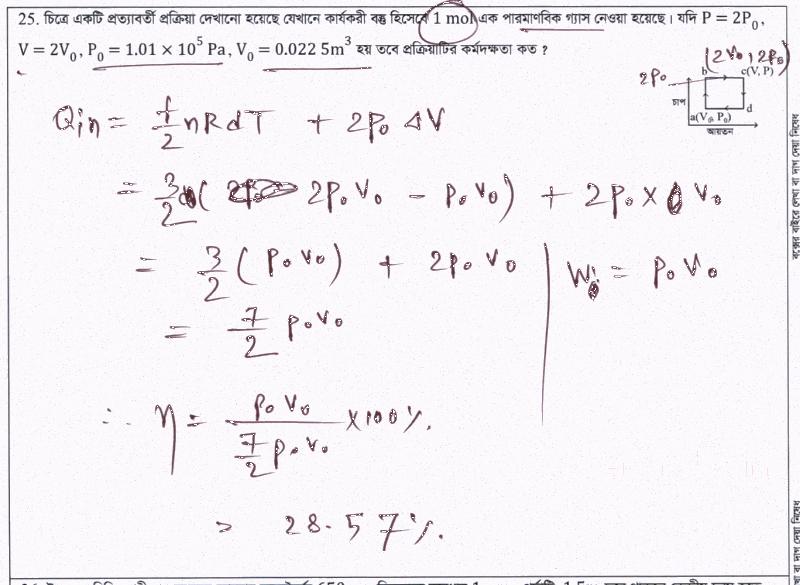 25. চিত্রে একটি প্রত্যাবর্তী প্রক্রিয়া দেখানো হয়েছে যেখানে কার্যকরী বস্তু হিসেবে 1 mol এক পারমাণবিক গ্যাস নেওয়া হয়েছে। যদি P = 2P₀,
V = 2V₀, P₀ = 1.01 × 10⁵ Pa, V₀ = 0.022 5m³ হয় তবে প্রক্রিয়াটির কর্মদক্ষতা কত ?
(2V₀, 2P₀)
2P₀
b c(V, P)
চাপ
d
a(V₀, P₀)
আয়তন
Qin = f/2 nRdT + 2P₀ ΔV
= 3/2 (2P₀V₀ - P₀V₀) + 2P₀ × V₀
= 3/2 (P₀V₀) + 2P₀V₀
W = P₀V₀
= 7/2 P₀V₀
∴ η = P₀V₀ / 7/2 P₀V₀ × 100%.
= 28.57%.
বক্সের বাইরে লেখা বা দাগ দেয়া নিষেধ
বা দাগ দেয়া নিষেধ